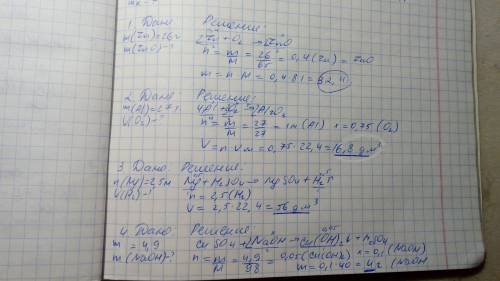 1. Дано
Решение:
m(Zn)=26г
2Zn+O₂→2ZnO
m(ZnO)-?
n=m/M=26/65=0,4(Zn)=ZnO
m=n·M=0,4·81=32,4
2. Дано
Решение:
m(Al)=27г.
4Al+3O₂→2Al₂O₃
V(O₂)-?
n=m/M=27/27=1м(Al) x=0,75(O₂)
V=n·Vм=0,75·22,4=16,8дм³
3 Дано.
Решение.
n(Mg)=2,5м
Mg+H₂SO₄→MgSO₄+H₂↑
V(H₂)-?
n=2,5(H₂)
V=2,5·22,4=56дм³
4. Дано:
Решение
m=4,9
CuSO₄+2NaOH→Cu(OH)₂↓+Na₂SO₄
0,05
m(NaOH)-?
n=m/M=4,9/98=0,05(Cu(OH)₂) x=0,1(NaOH)
m=0,1·40=4г(NaOH